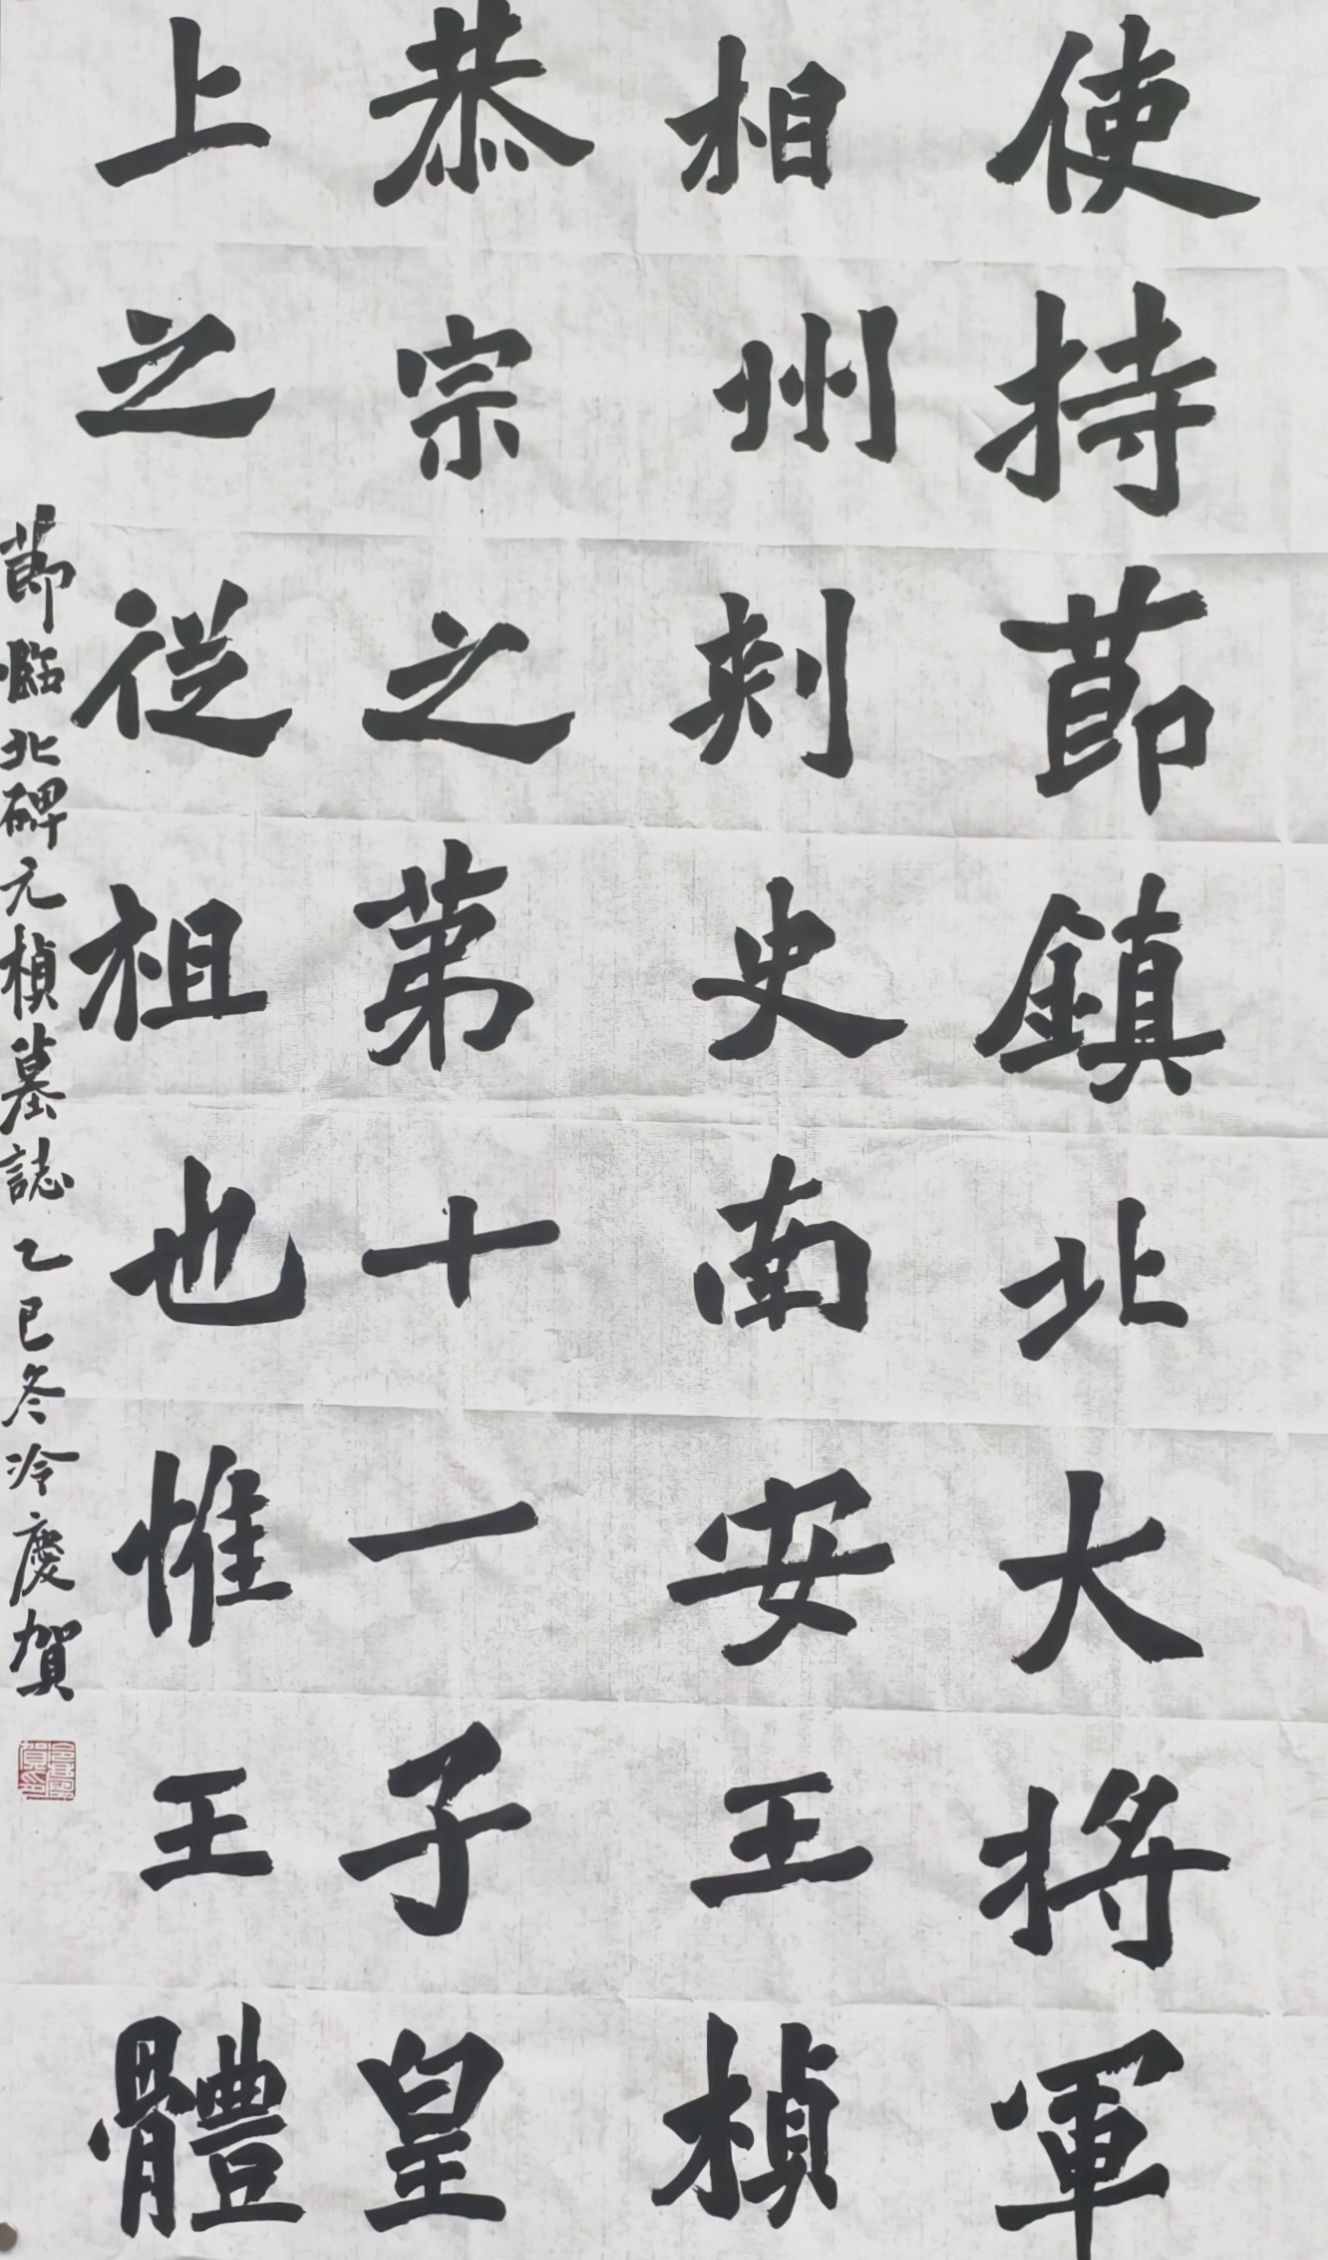 使持節鎮北大將軍
相州刾史南安王楨
恭宗之第十一子皇
上之從祖也惟王體
節臨北碑元楨墓誌乙巳冬冷慶賀